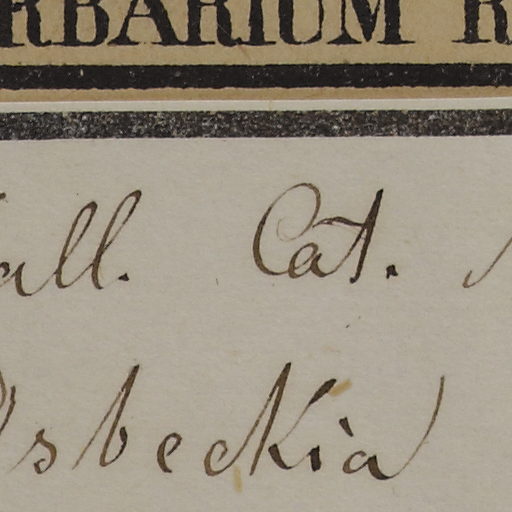 RBARIUM R
all. Cat.
Osbeckia